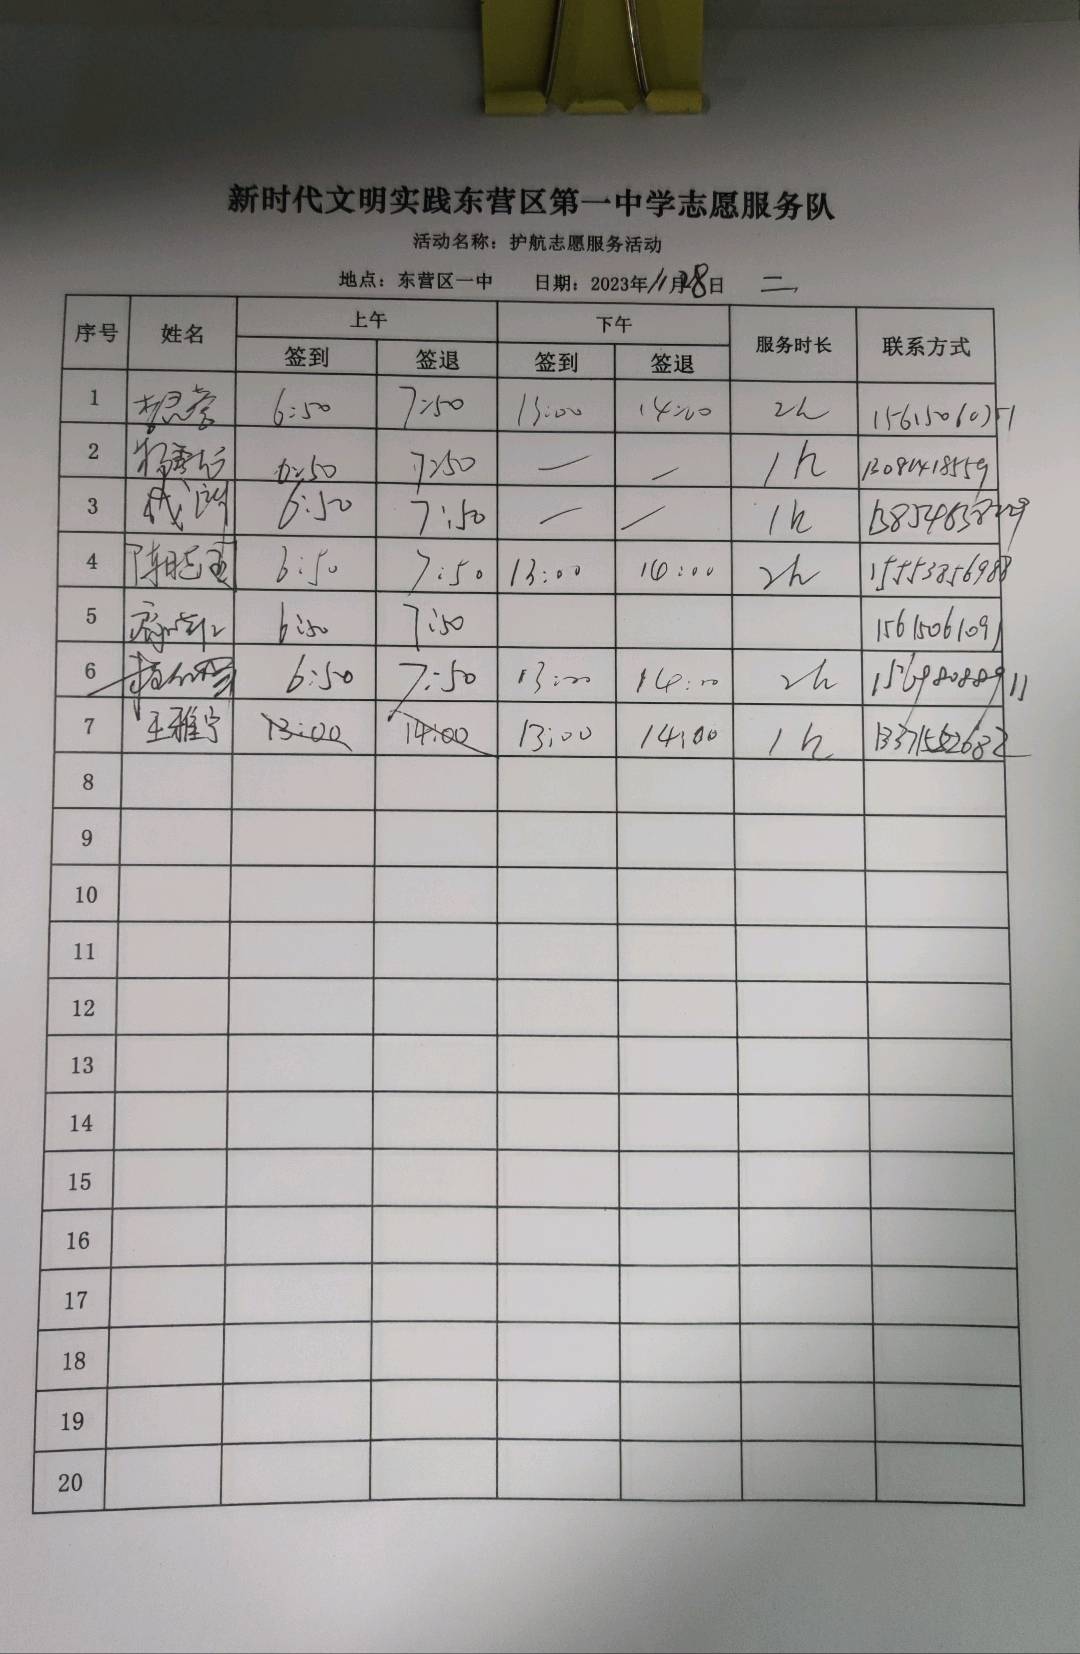 新时代文明实践东营区第一中学志愿服务队
活动名称：护航志愿服务活动
地点：东营区一中 日期：2023年11月28日 二
序号 姓名 上午 下午 服务时长 联系方式
签到 签退 签到 签退
1 6:50 7:50 13:00 14:00 2h
2 6:50 7:50 — — 1h
3 6:50 7:50 — — 1h
4 陈晓玉 6:50 7:50 13:00 14:00 2h 15553856988
5 6:50 7:50 15615061091
6 6:50 7:50 13:00 14:00 2h
7 王雅宁 13:00 14:00 13:00 14:00 1h
8
9
10
11
12
13
14
15
16
17
18
19
20